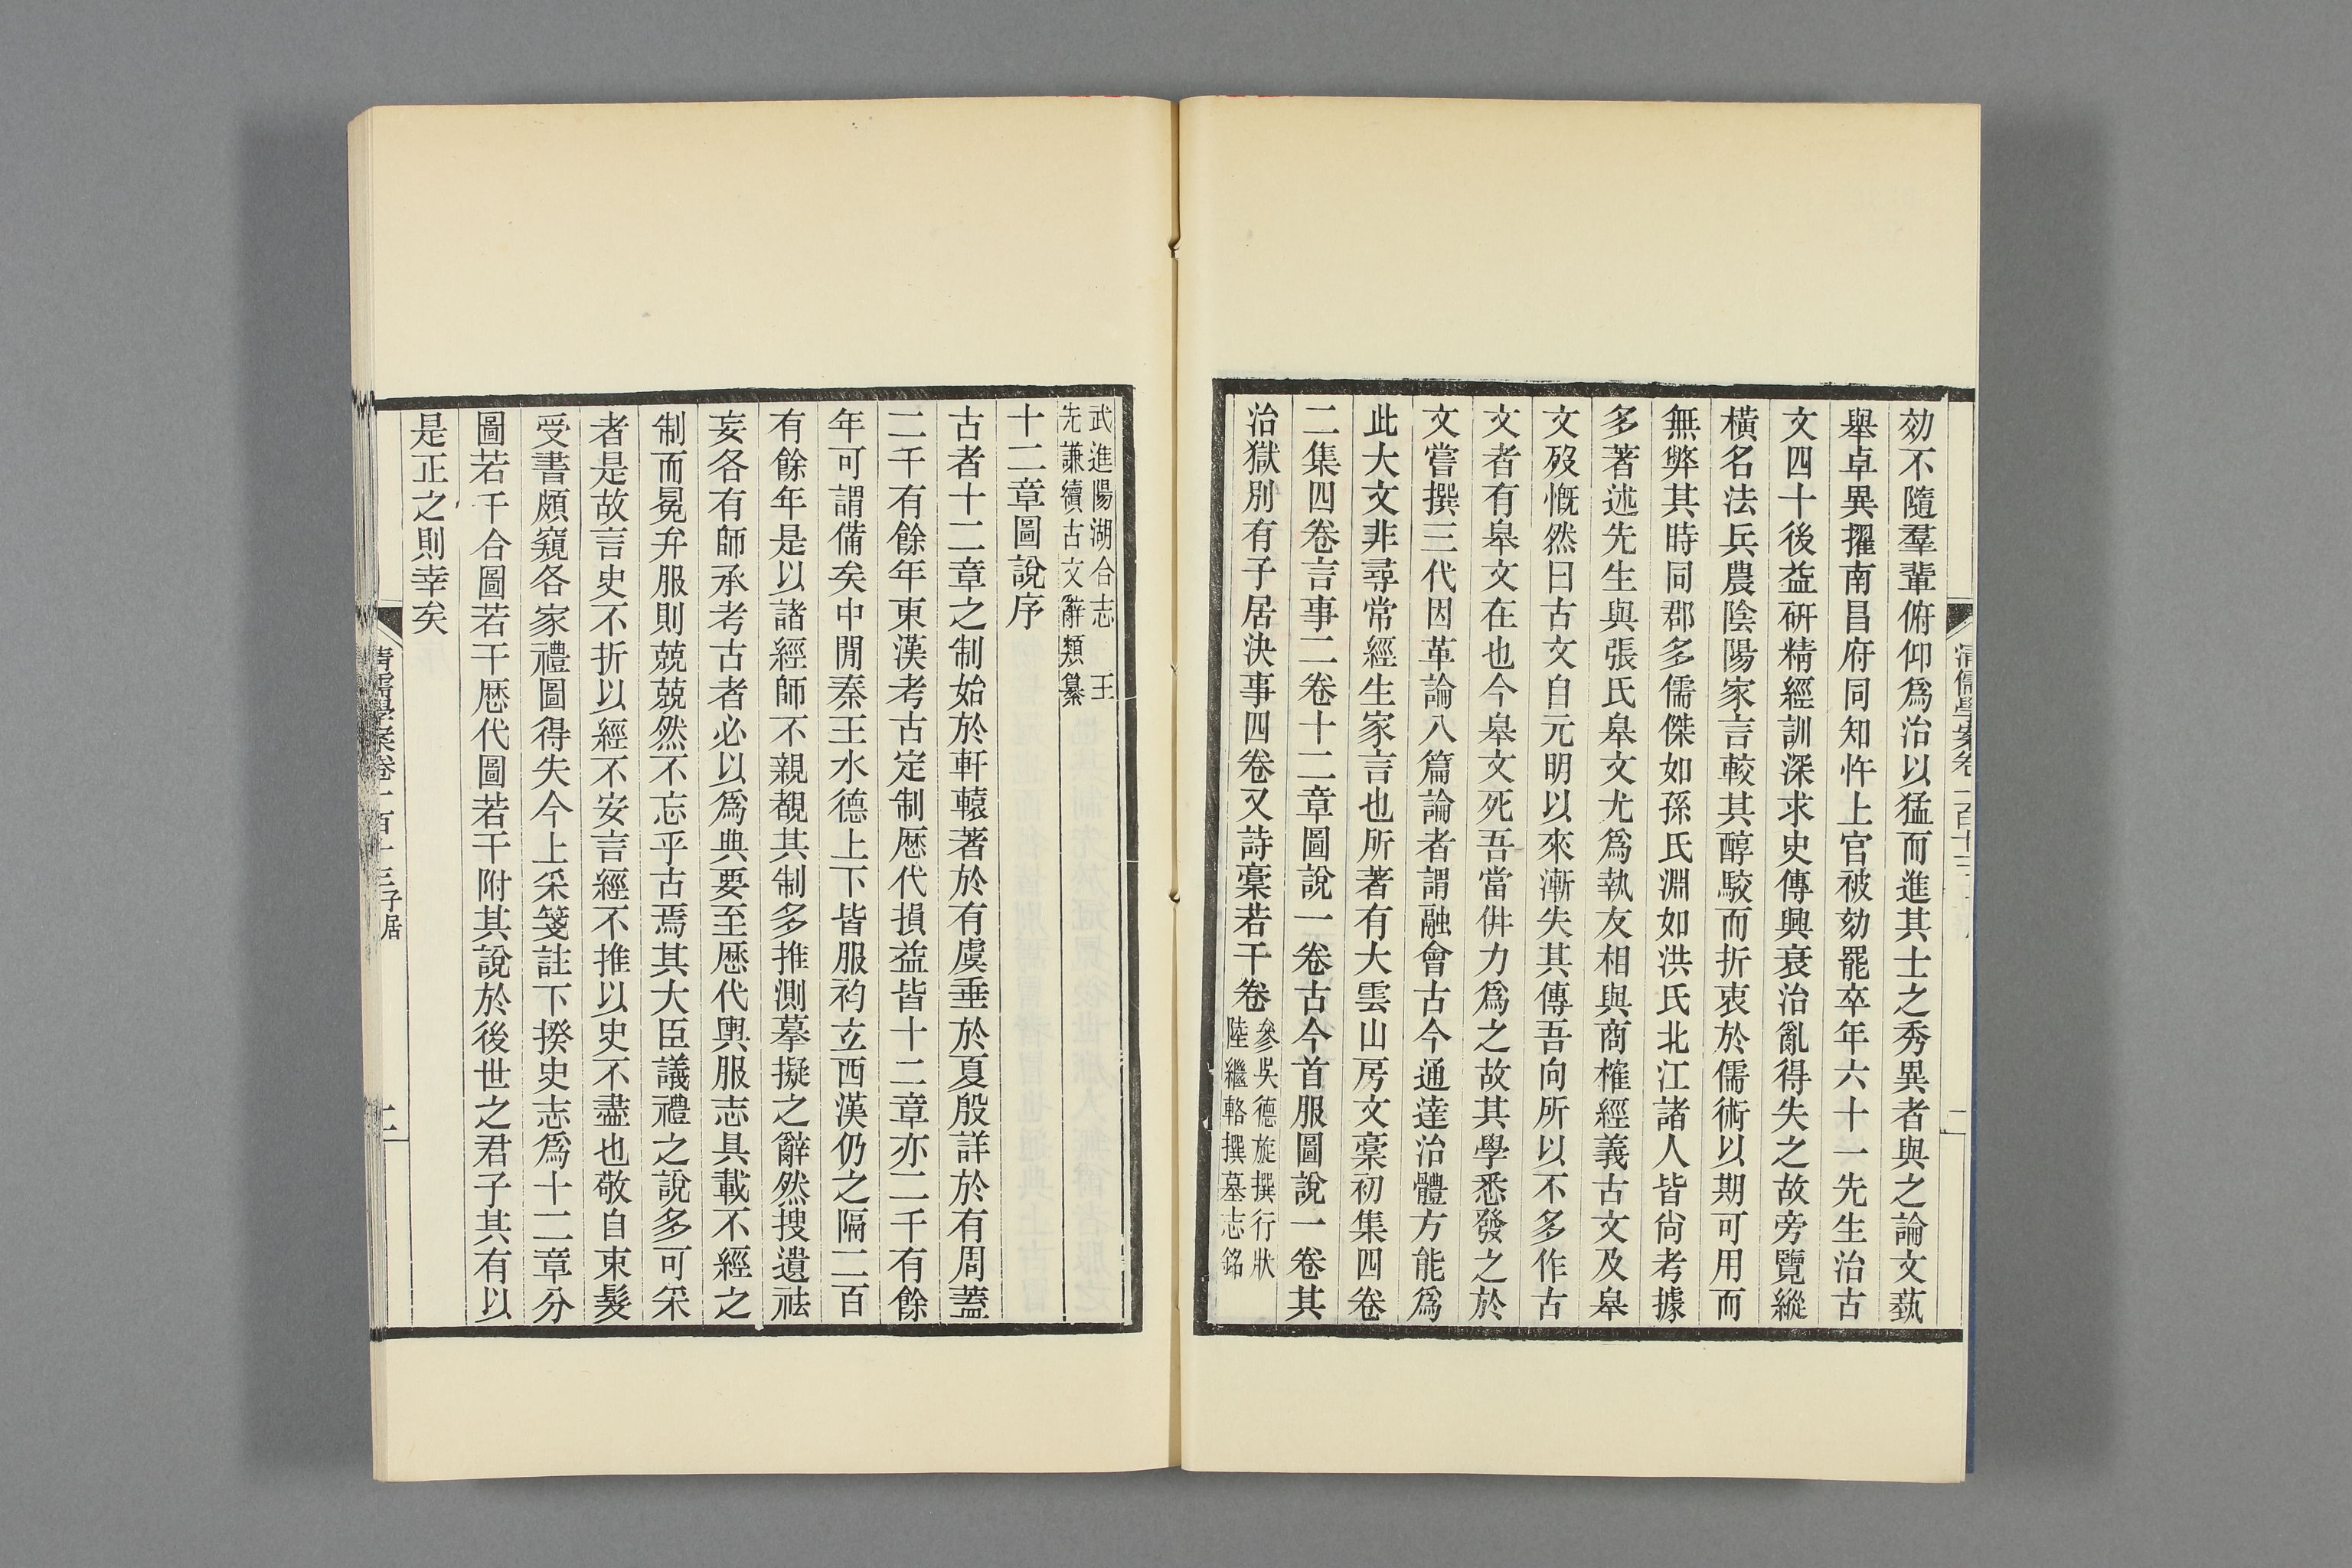 効不隨羣輩俯仰爲治以猛而進其士之秀異者與之論文蓺
舉卓異擢南昌府同知忤上官被劾罷卒年六十一先生治古
文四十後益研精經訓深求史傳興衰治亂得失之故旁覽縱
橫名法兵農陰陽家言較其醇駮而折衷於儒術以期可用而
無弊其時同郡多儒傑如孫氏淵如洪氏北江諸人皆尙考據
多著述先生與張氏皋文尤爲執友相與商榷經義古文及皋
文歿慨然曰古文自元明以來漸失其傳吾向所以不多作古
文者有皋文在也今皋文死吾當倂力爲之故其學悉發之於
文嘗撰三代因革論八篇論者謂融會古今通達治體方能爲
此大文非尋常經生家言也所著有大雲山房文稾初集四卷
二集四卷言事二卷十二章圖說一卷古今首服圖說一卷其
治獄別有子居決事四卷又詩稾若干卷
參吳德旋撰行狀
陸繼輅撰墓志銘
武進陽湖合志 王
先謙續古文辭類纂
十二章圖說序
古者十二章之制始於軒轅著於有虞垂於夏殷詳於有周蓋
二千有餘年東漢考古定制歷代損益皆十二章亦二千有餘
年可謂備矣中閒秦王水德上下皆服袀立西漢仍之隔二百
有餘年是以諸經師不親覩其制多推測摹擬之辭然搜遺祛
妄各有師承考古者必以爲典要至歷代輿服志具載不經之
制而冕弁服則兢兢然不忘乎古焉其大臣議禮之說多可采
者是故言史不折以經不安言經不推以史不盡也敬自束髮
受書頗窺各家禮圖得失今上采箋註下揆史志爲十二章分
圖若千合圖若干歷代圖若干附其說於後世之君子其有以
是正之則幸矣
清儒學案卷一百十三 子居
二